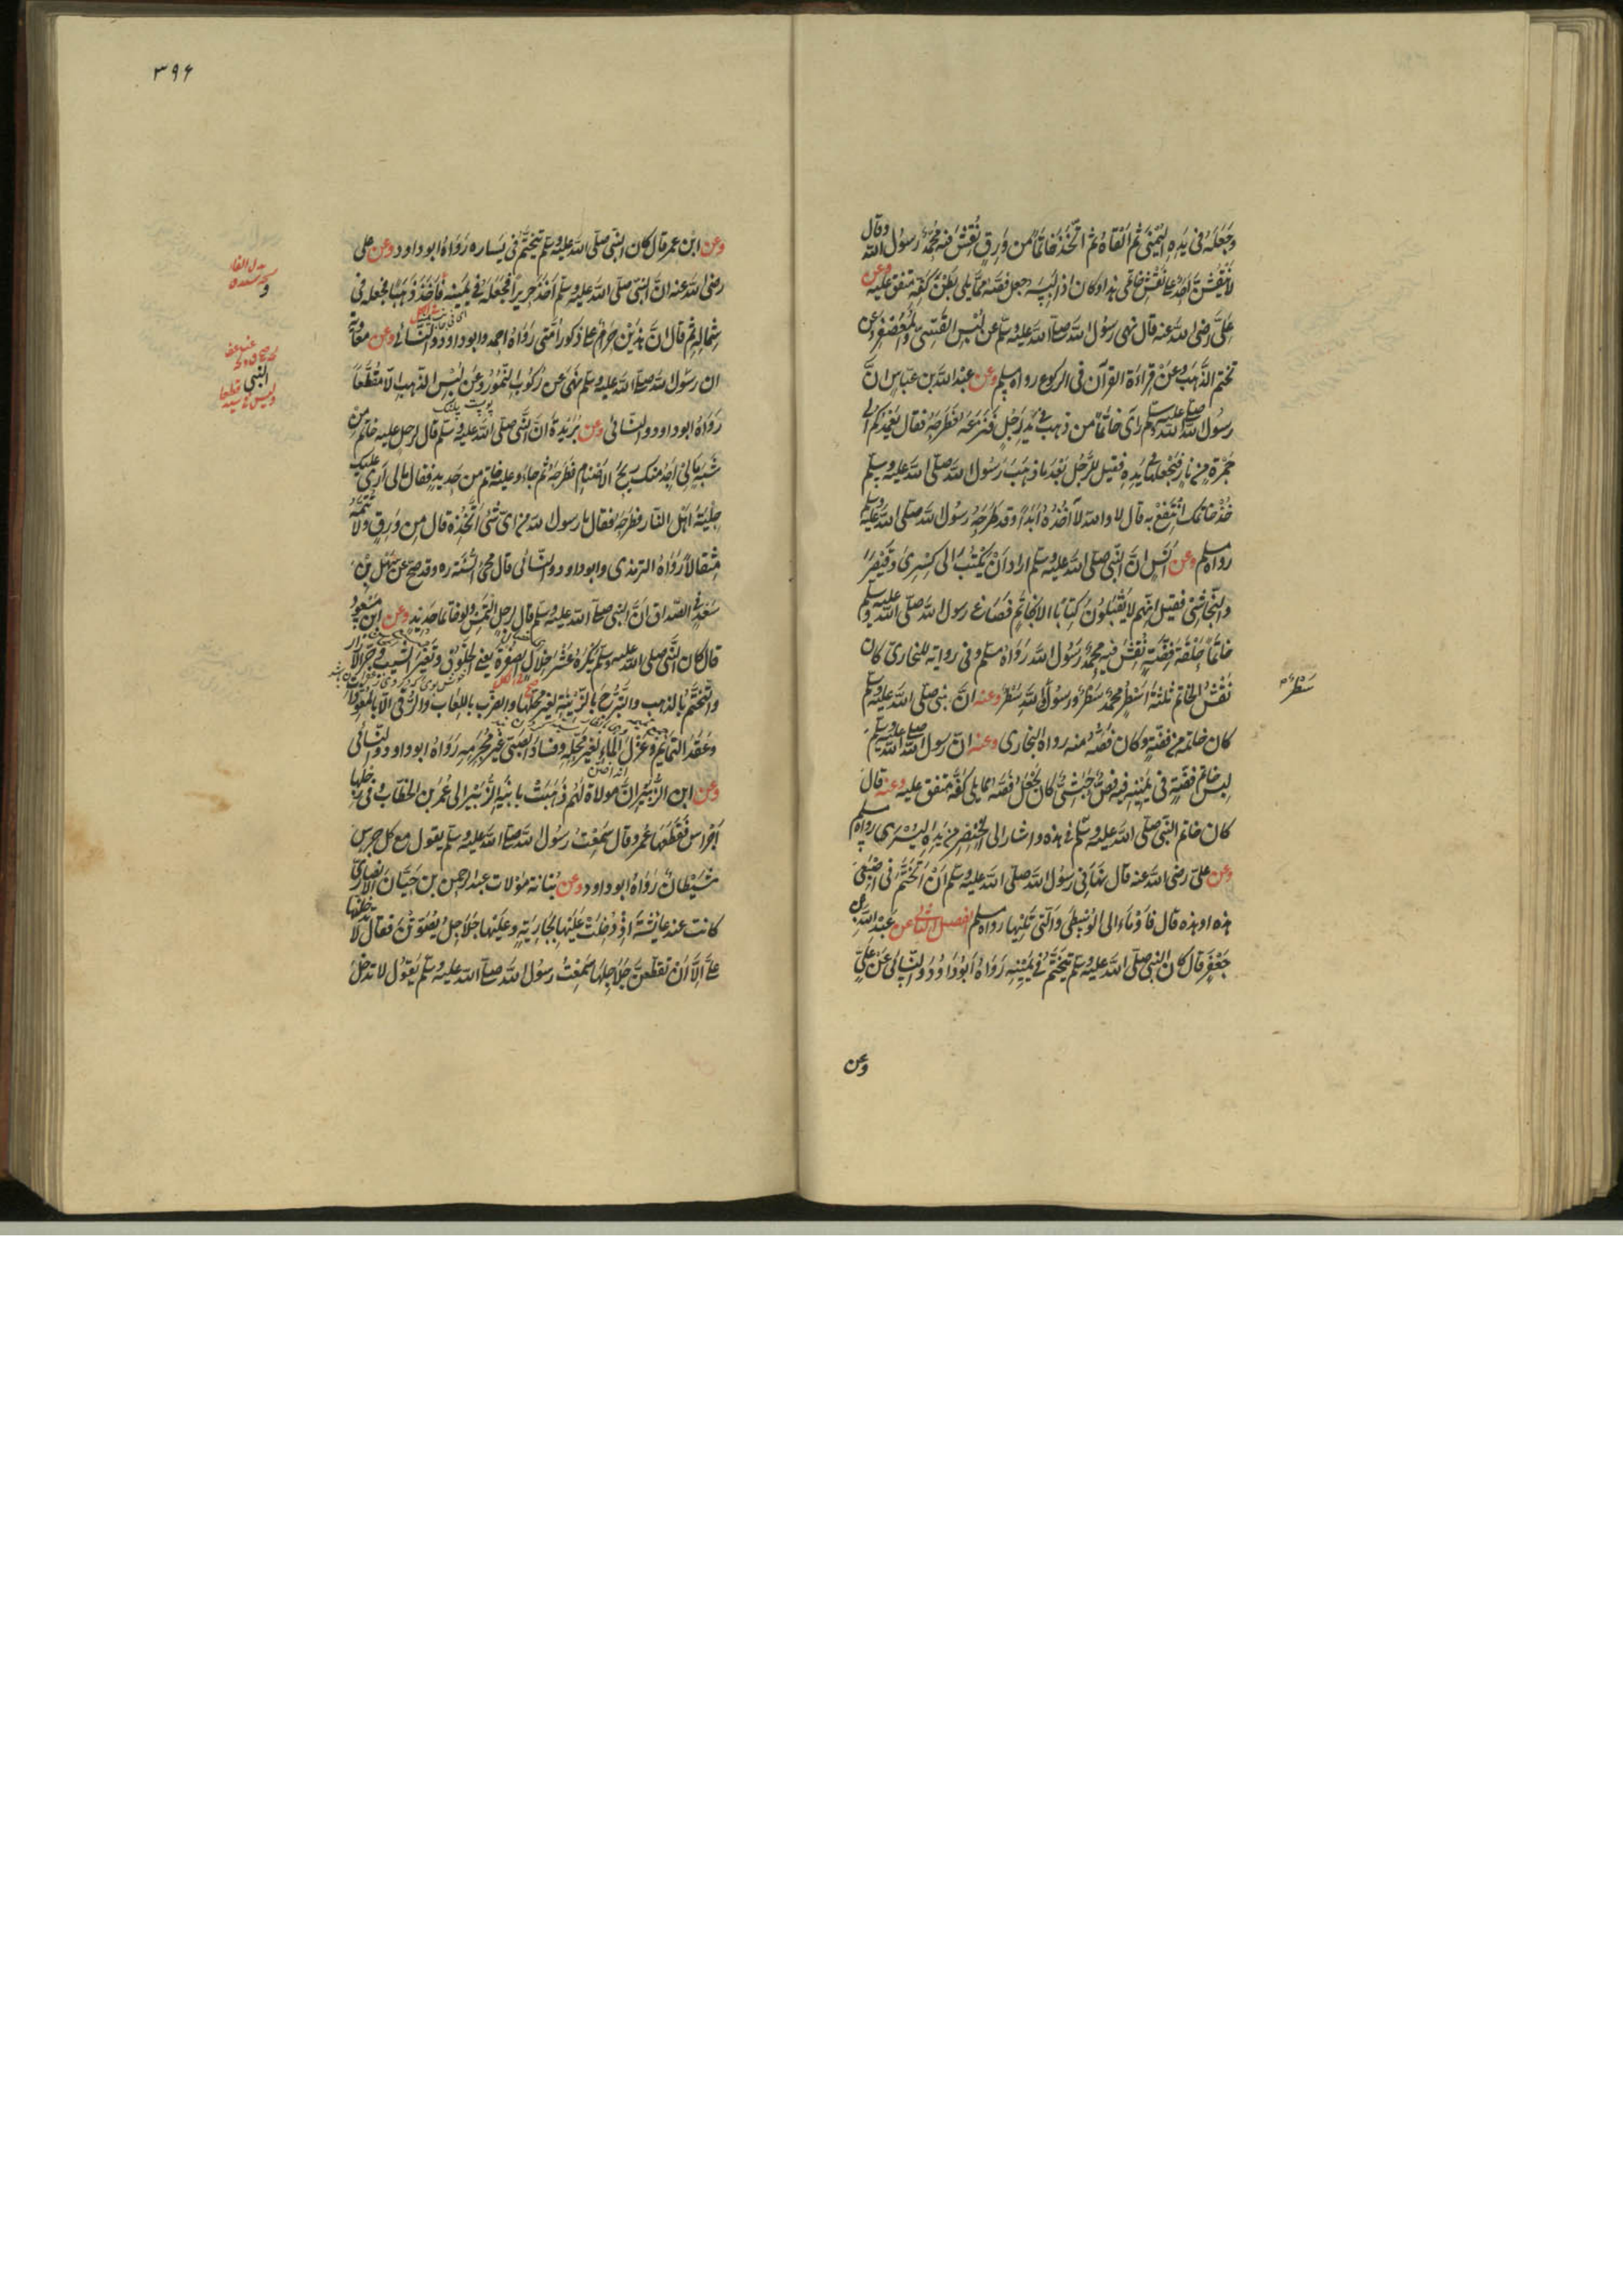 وجعله فى يده اليمنى ثم القاه ثم اتخذ خاتما من ورق نقش فيه محمد رسول الله وقال
لا ينقشن احد على نقش خاتمى هذا وكان اذا لبسه جعل فصه مما يلى بطن كفه متفق عليه وعن
على رضى الله عنه قال نهى رسول الله صلى الله عليه وسلم عن لبس القسى والمعصفر وعن
تختم الذهب وعن قراءة القرآن فى الركوع رواه مسلم وعن عبد الله بن عباس ان
رسول الله صلى الله عليه وسلم راى خاتما من ذهب فى يد رجل فنزعه فطرحه فقال يعمد احدكم الى
جمرة من نار فيجعلها فى يده فقيل للرجل بعد ما ذهب رسول الله صلى الله عليه وسلم
خذ خاتمك انتفع به قال لا والله لا آخذه ابدا وقد طرحه رسول الله صلى الله عليه وسلم
رواه مسلم وعن انس ان النبى صلى الله عليه وسلم اراد ان يكتب الى كسرى وقيصر
والنجاشى فقيل انهم لا يقبلون كتابا الا بخاتم فصاغ رسول الله صلى الله عليه وسلم
خاتما حلقة فضة نقش فيه محمد رسول الله رواه مسلم وفى رواية للبخارى كان
نقش الخاتم ثلثة اسطر محمد سطر ورسول الله سطر وعنه ان نبى صلى الله عليه وسلم
سطر
كان خاتمه من فضة وكان فصه منه رواه البخارى وعنه ان رسول الله صلى الله عليه وسلم
لبس خاتم فضة فى يمينه فيه فص حبشى كان يجعل فصه مما يلى كفه متفق عليه وعنه قال
كان خاتم النبى صلى الله عليه وسلم فى هذه واشار الى الخنصر من يده اليسرى رواه مسلم
وعن على رضى الله عنه قال نهانى رسول الله صلى الله عليه وسلم ان اتختم فى اصبعى
هذه او هذه قال فاومأ الى الوسطى والتى تليها رواه مسلم الفصل الثانى عن عبد الله بن
جعفر قال كان النبى صلى الله عليه وسلم يتختم فى يمينه رواه ابو داود والنسائى عن على
وعن
٣٩۶
وعن ابن عمر قال كان النبى صلى الله عليه وسلم يتختم فى يساره رواه ابو داود وعن على
رضى الله عنه ان النبى صلى الله عليه وسلم اخذ حريرا فجعله فى يمينه فاخذ ذهبا فجعله فى
شماله ثم قال ان هذين حرام على ذكور امتى رواه احمد وابو داود والنسائى وعن معاوية
ان رسول الله صلى الله عليه وسلم نهى عن ركوب النمور وعن لبس الذهب الا مقطعا
رواه ابو داود والنسائى وعن بريدة ان النبى صلى الله عليه وسلم قال لرجل عليه خاتم من
شبه مالى اجد منك ريح الاصنام فطرحه ثم جاء وعليه خاتم من حديد فقال مالى ارى عليك
حلية اهل النار فطرحه فقال يا رسول الله من اى شئ اتخذه قال من ورق ولا تتمه
مثقالا رواه الترمذى وابو داود والنسائى قال محى السنة ره وقد صح عن سهل بن
سعد فى الصداق ان النبى صلى الله عليه وسلم قال لرجل التمس ولو خاتما من حديد وعن ابن مسعود
قال كان النبى صلى الله عليه وسلم يكره عشر خلال الصفرة يعنى الخلوق وتغيير الشيب وجر الازار
والتختم بالذهب والتبرج بالزينة لغير محلها والضرب بالكعاب والرقى الا بالمعوذات
وعقد التمائم وعزل الماء لغير محله وفساد الصبى غير محرمه رواه ابو داود والنسائى
وعن ابن الزبير ان مولاة لهم ذهبت بابنة الزبير الى عمر بن الخطاب وفى رجلها
اجراس فقطعها عمر وقال سمعت رسول الله صلى الله عليه وسلم يقول مع كل جرس
شيطان رواه ابو داود وعن بنانة مولات عبد الرحمن بن حيان الانصارى
كانت عند عايشة اذ دخلت عليها بجارية وعليها جلاجل يصوتن فقالت لا تدخلنها
على الا ان تقطعن جلاجلها سمعت رسول الله صلى الله عليه وسلم يقول لا تدخل